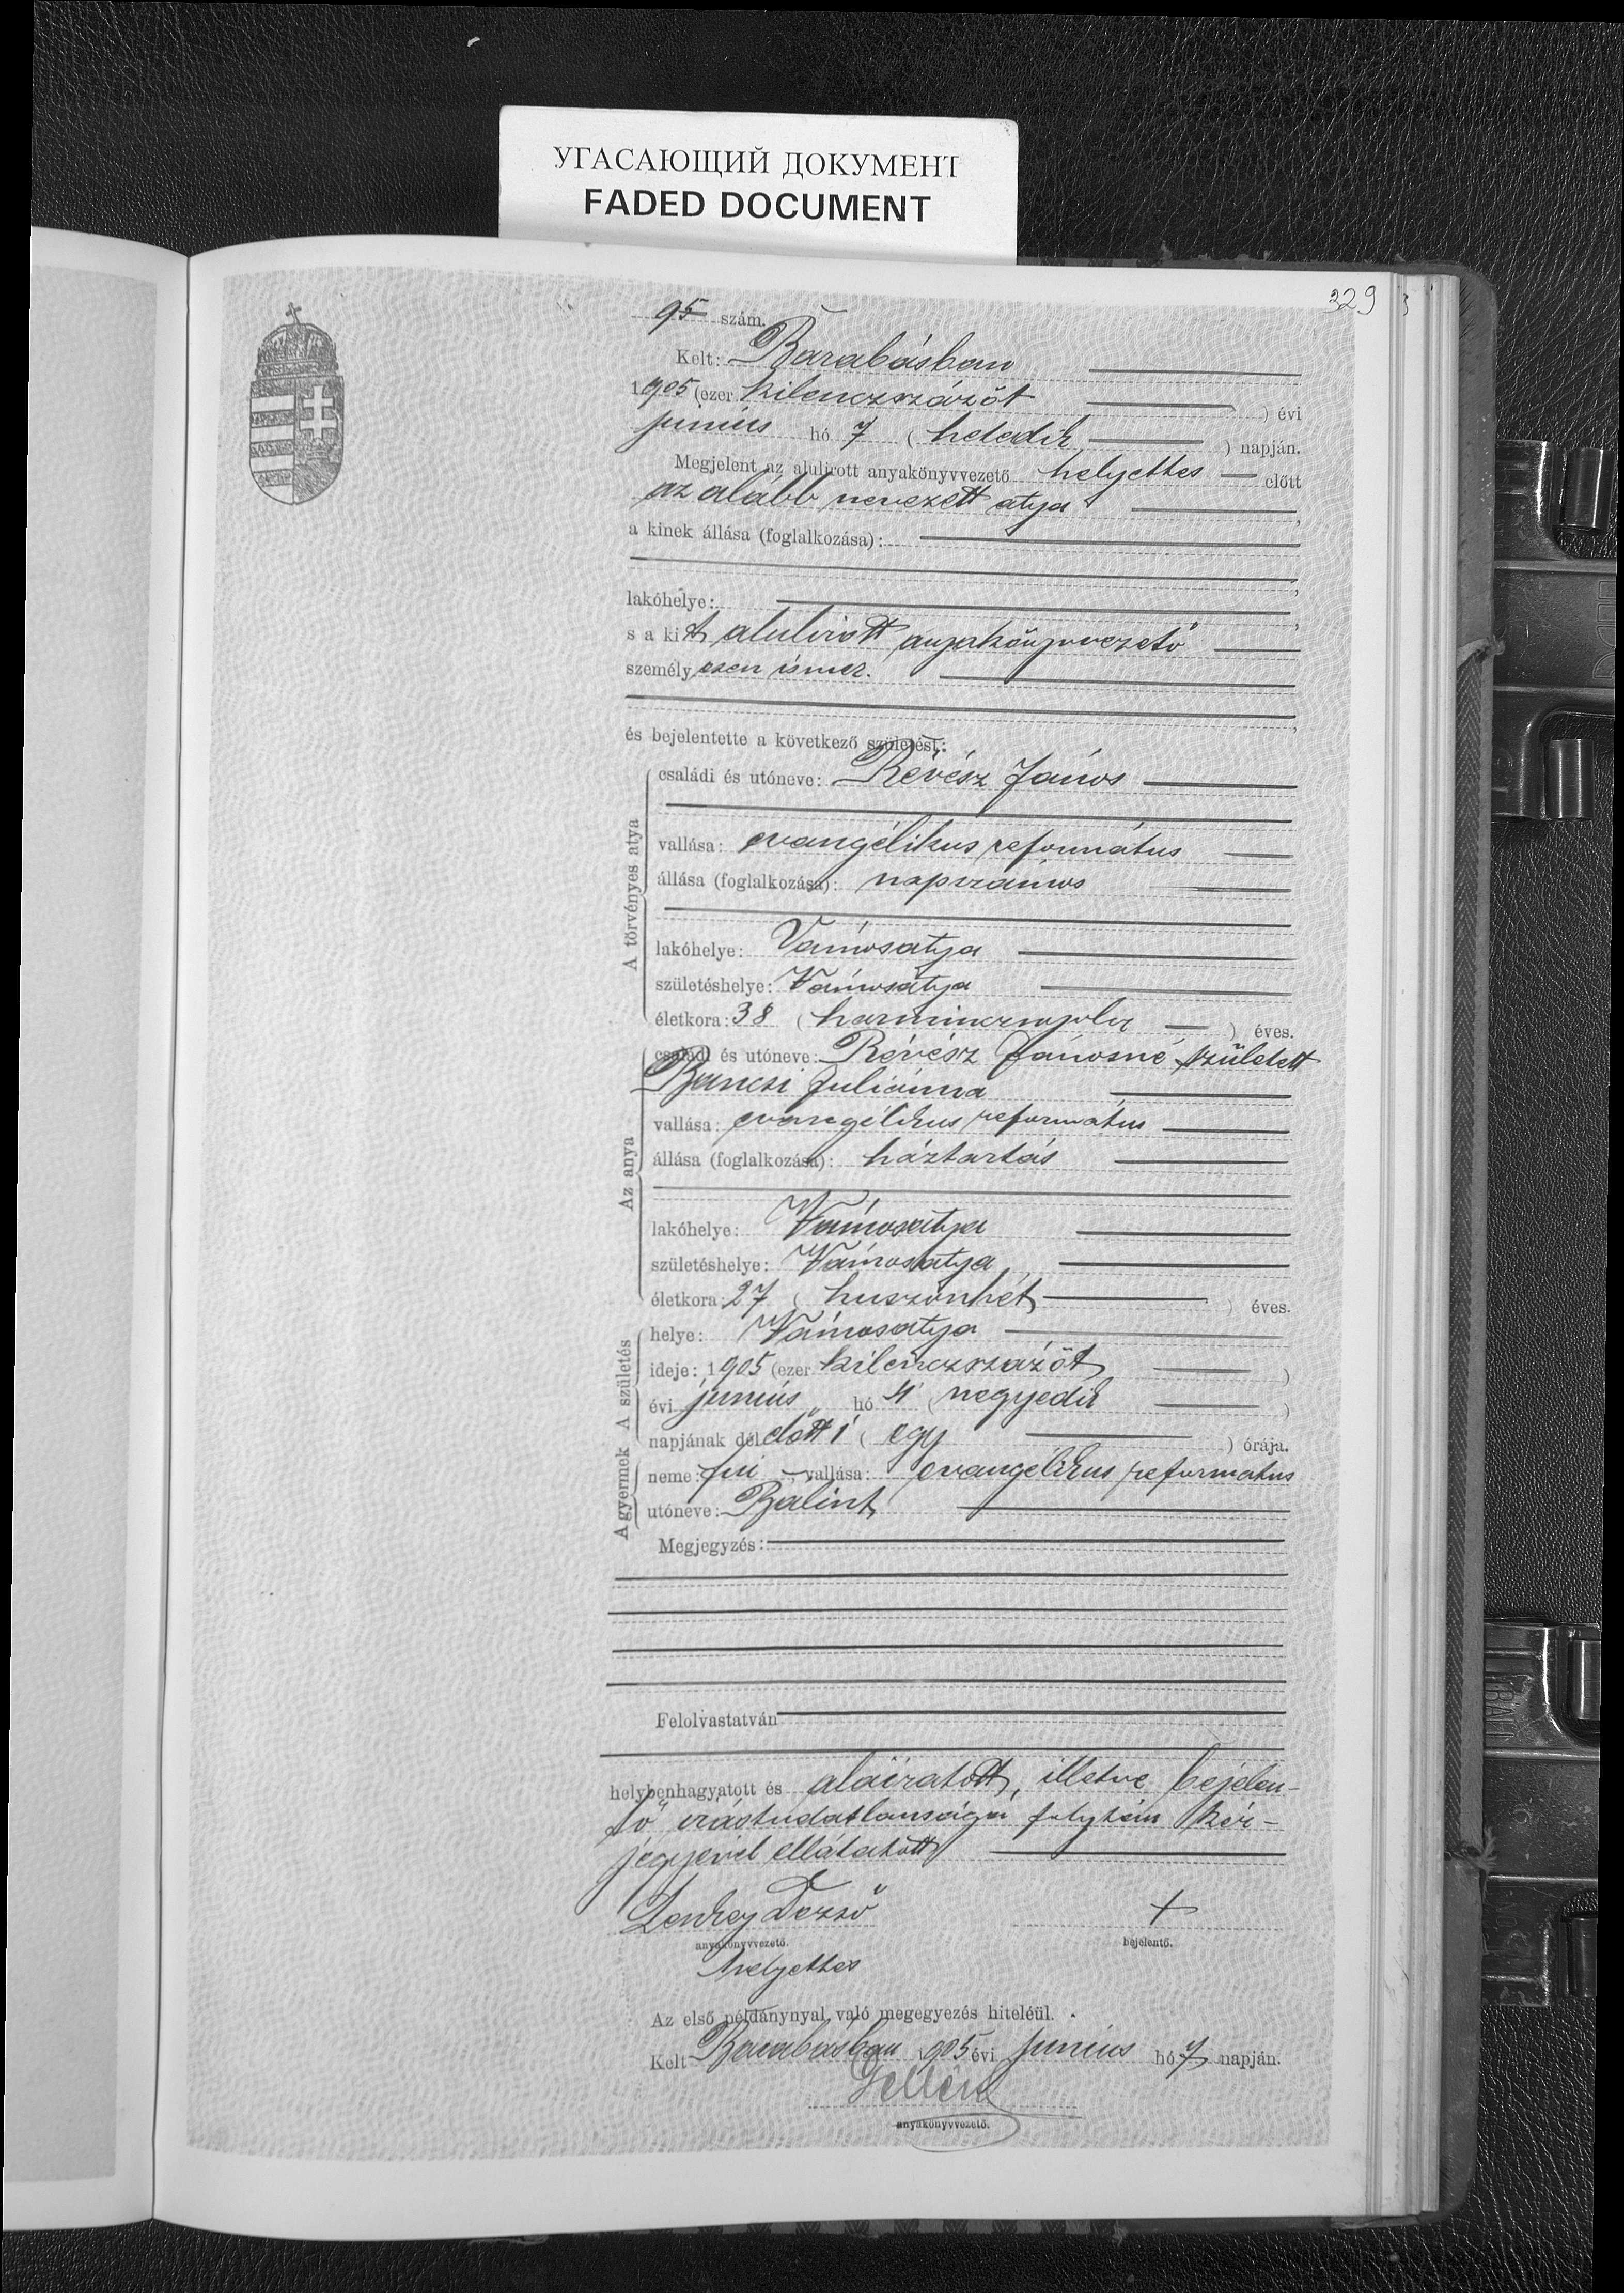 УГАСАЮЩИЙ ДОКУМЕНТ
FADED DOCUMENT
329
95 szám.
Kelt: Barabásban
1905 (ezer kilenczszázöt ) évi
junius hó 7 ( hetedik ) napján.
Megjelent az alulirott anyakönyvvezető helyettes előtt
az alább nevezett atya,
a kinek állása (foglalkozása):
lakóhelye:
s a kit alulirott anyakönyvvezető
személyesen ismer.
és bejelentette a következő születést:
A törvényes atya
családi és utóneve: Révész János
vallása: evangélikus református
állása (foglalkozása): napszámos
lakóhelye: Vámosatya
születéshelye: Vámosatya
életkora: 38 ( harmincznyolcz ) éves.
Az anya
családi és utóneve: Révész Jánosné született
Bancsi Juliánna
vallása: evangélikus református
állása (foglalkozása): háztartás
lakóhelye: Vámosatya
születéshelye: Vámosatya
életkora: 27 ( huszonhét ) éves.
A születés
helye: Vámosatya
ideje: 1905 (ezer kilenczszázöt )
évi junius hó 4 ( negyedik )
napjának délelőtt 1 ( egy ) órája.
A gyermek
neme: fiú vallása: evangélikus református
utóneve: Bálint
Megjegyzés:
Felolvastatván
helybenhagyatott és aláiratott, illetve bejelen-
tő irástudatlansága folytán kéz-
jegyével ellátatott
Dezső +
anyakönyvvezető. bejelentő.
helyettes
Az első példánynyal való megegyezés hiteléül.
Kelt Barabásban 1905 évi junius hó 7 napján.
anyakönyvvezető.